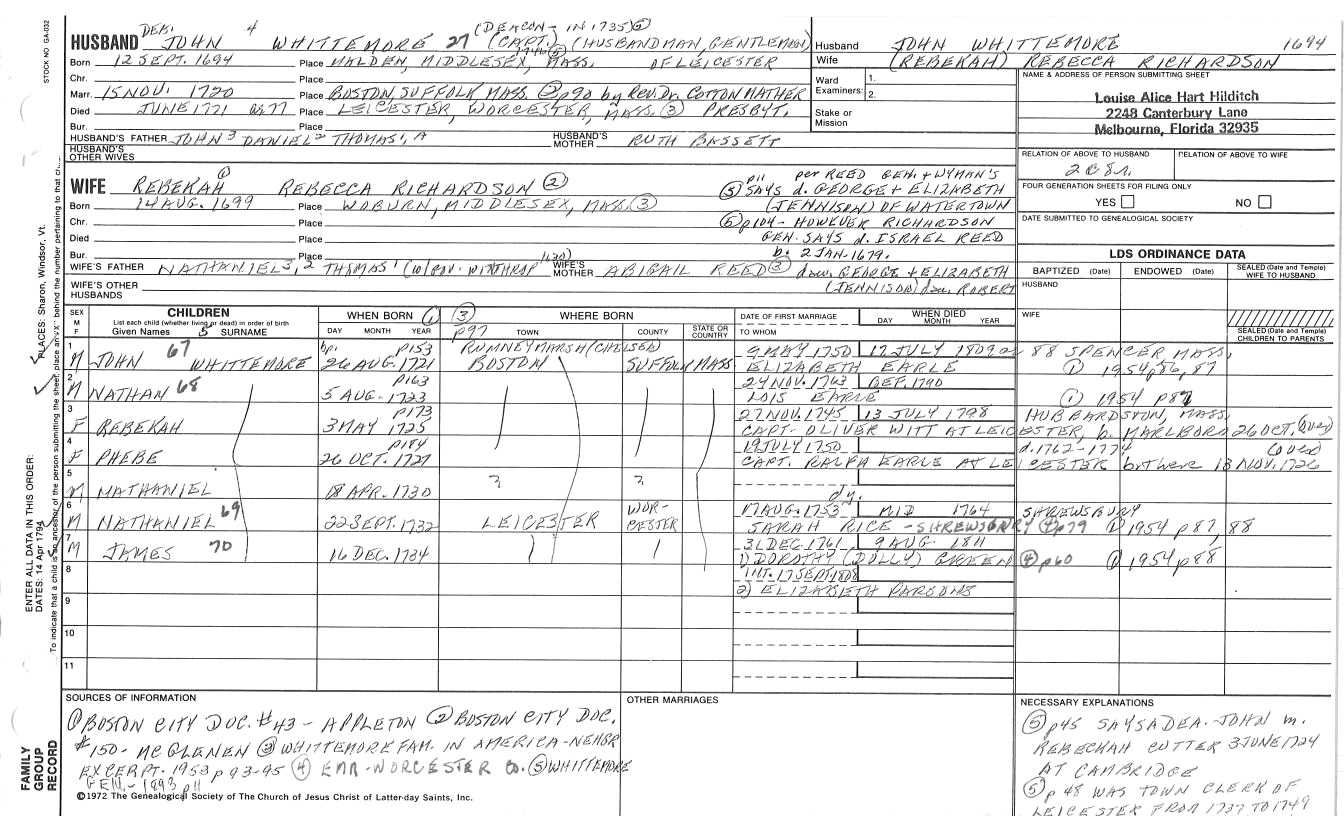 STOCK NO. GA-032
PLACES: Sharon, Windsor, Vt.
ENTER ALL DATA IN THIS ORDER:
DATES: 14 Apr 1794
To indicate that a child is an ancestor of the person submitting the sheet, place an "X" behind the number pertaining to that
FAMILY GROUP RECORD
DEA. 4 (DEACON - IN 1735) ⑤
HUSBAND JOHN WHITTEMORE 27 (CAPT.) (HUSBANDMAN, GENTLEMAN)
1746 ⑤
Born 12 SEPT. 1694 Place MALDEN, MIDDLESEX, MASS. OF LEICESTER
Chr. Place
Marr. 15 NOV. 1720 Place BOSTON, SUFFOLK, MASS. ② p90 by Rev. Dr. COTTON MATHER
Died JUNE 1771 ae 77 Place LEICESTER, WORCESTER, MASS. ③ PRESBYT.
Bur. Place
HUSBAND'S FATHER JOHN³ DANIEL² THOMAS¹, A HUSBAND'S MOTHER RUTH BASSETT
HUSBAND'S OTHER WIVES
Husband JOHN WHITTEMORE 1694
Wife (REBEKAH) REBECCA RICHARDSON
Ward Examiners: 1. 2.
Stake or Mission
NAME & ADDRESS OF PERSON SUBMITTING SHEET
Louise Alice Hart Hilditch
2248 Canterbury Lane
Melbourne, Florida 32935
RELATION OF ABOVE TO HUSBAND RELATION OF ABOVE TO WIFE
FOUR GENERATION SHEETS FOR FILING ONLY
YES NO
DATE SUBMITTED TO GENEALOGICAL SOCIETY
WIFE REBEKAH ① REBECCA RICHARDSON ②
Born 14 AUG. 1699 Place WOBURN, MIDDLESEX, MASS. ③
Chr. Place
Died Place
Bur. Place
p11 per REED GEN. + WYMAN'S
⑤ SAYS d. GEORGE + ELIZABETH
(JENNISON) OF WATERTOWN
⑥ p104 - HOWEVER RICHARDSON
GEN. SAYS d. ISRAEL REED
b. 2 JAN. 1679.
WIFE'S FATHER NATHANIEL³,² THOMAS¹ (w/GOV. WINTHROP 1630) WIFE'S MOTHER ABIGAIL REED ③ dau. GEORGE + ELIZABETH
(JENNISON) dau. ROBERT
WIFE'S OTHER HUSBANDS
LDS ORDINANCE DATA
BAPTIZED (Date) ENDOWED (Date) SEALED (Date and Temple) WIFE TO HUSBAND
HUSBAND
WIFE
SEALED (Date and Temple) CHILDREN TO PARENTS
SEX M F CHILDREN List each child (whether living or dead) in order of birth Given Names 5 SURNAME
WHEN BORN ① DAY MONTH YEAR
③ p97 WHERE BORN TOWN COUNTY STATE OR COUNTRY
DATE OF FIRST MARRIAGE TO WHOM WHEN DIED DAY MONTH YEAR
1 M JOHN 67 WHITTEMORE bp. p153 26 AUG. 1721 RUMNEYMARSH/CHELSEA BOSTON SUFFOLK MASS 9 MAY 1750 17 JULY 1809 ae 88 SPENCER, MASS.
ELIZABETH EARLE ① 1954 p86, 87
2 M NATHAN 68 p163 5 AUG. 1723 24 NOV. 1763 BEF. 1790
LOIS EARLE ① 1954 p87
3 F REBEKAH p173 3 MAY 1725 27 NOV. 1745 13 JULY 1798 HUBBARDSTON, MASS.
CAPT. OLIVER WITT AT LEICESTER, b. MARLBORO 26 OCT. (over)
4 F PHEBE p184 26 OCT. 1727 19 JULY 1750 d. 1762-1774 (over)
CAPT. RALPH EARLE AT LEICESTER b. there 13 NOV. 1726
5 M NATHANIEL 18 APR. 1730 ? ?
6 M NATHANIEL 69 22 SEPT. 1732 LEICESTER WOR-CESTER 17 AUG. 1753 MID 1764 SHREWSBURY
SARAH RICE - SHREWSBURY ④ p279 ① 1954 p87, 88
7 M JAMES 70 16 DEC. 1734 31 DEC. 1761 9 AUG. 1811
1) DOROTHY (DOLLY) GREEN ④ p60 ① 1954 p88
8 int. 17 SEPT 1808
2) ELIZABETH PARSONS
9
10
11
SOURCES OF INFORMATION
① BOSTON CITY DOC. #43 - APPLETON ② BOSTON CITY DOC.
#150 - MCGLENEN ③ WHITTEMORE FAM. IN AMERICA - NEHGR
EXCERPT. 1953 p93-95 ④ EAR-WORCESTER Co. ⑤ WHITTEMORE
GEN. - 1893 p11
OTHER MARRIAGES
NECESSARY EXPLANATIONS
⑤ p45 SAYS A DEA. JOHN m.
REBECKAH CUTTER 3 JUNE 1724
AT CAMBRIDGE
⑤ p48 WAS TOWN CLERK OF
LEICESTER FROM 1737 TO 1749
©1972 The Genealogical Society of The Church of Jesus Christ of Latter-day Saints, Inc.